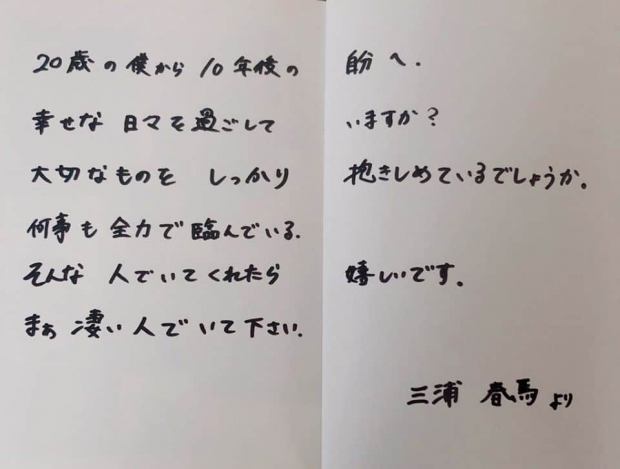 20歳の僕から10年後の 自分へ.
幸せな日々を過ごして いますか?
大切なものを しっかり 抱きしめているでしょうか。
何事も全力で臨んでいる.
そんな 人でいてくれたら 嬉しいです。
まぁ 凄い人でいて下さい.
三浦 春馬より